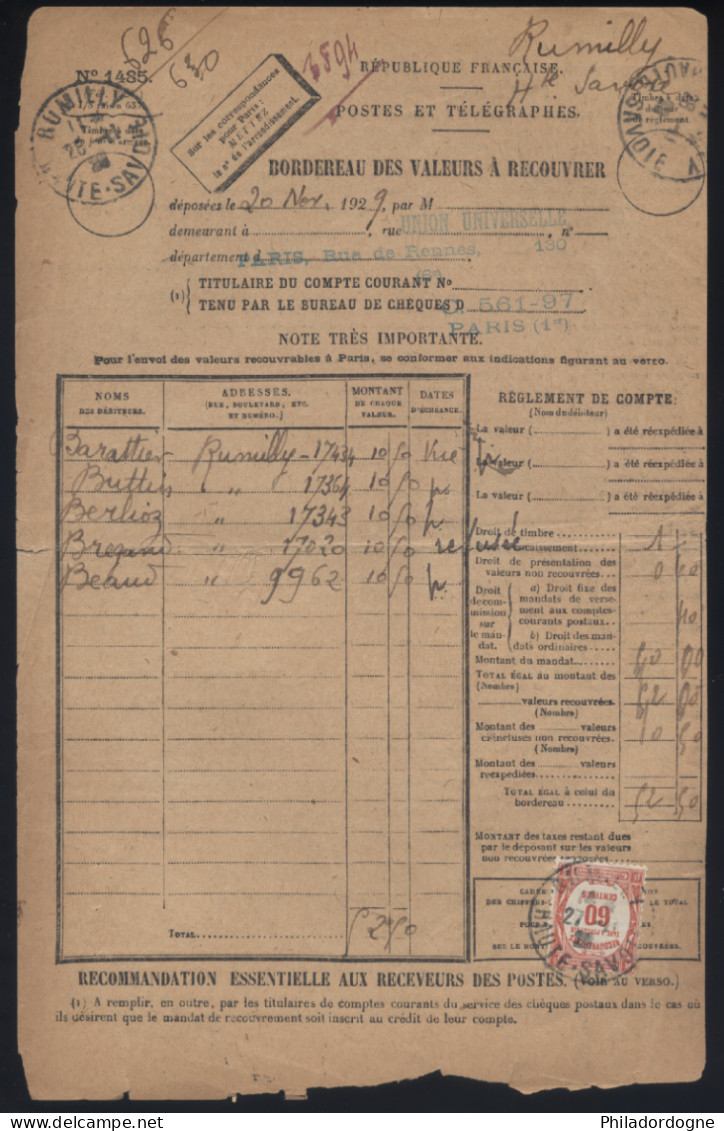 626
630
3894
Rumilly
Hte Savoie
Nº 1485.
RÉPUBLIQUE FRANÇAISE.
POSTES ET TÉLÉGRAPHES.
Sur les correspondances
pour Paris :
METTEZ
le nº de l'arrondissement.
RUMILLY
HAUTE-SAVOIE
Timbre à date
HAUTE-SAVOIE
BORDEREAU DES VALEURS À RECOUVRER
déposées le 20 Nov. 1929, par M
UNION UNIVERSELLE,
demeurant à , rue nº
130
département d
PARIS, Rue de Rennes,
(1) { TITULAIRE DU COMPTE COURANT Nº
TENU PAR LE BUREAU DE CHÈQUES D
C. 561-97
PARIS (1er)
NOTE TRÈS IMPORTANTE.
Pour l'envoi des valeurs recouvrables à Paris, se conformer aux indications figurant au verso.
NOMS
DES DÉBITEURS.
ADRESSES.
(RUE, BOULEVARD, ETC.
ET NUMÉRO.)
MONTANT
DE CHAQUE
VALEUR.
DATES
D'ÉCHÉANCE.
Barattier Rumilly - 17434 10 50 Vue
Buttin " 17364 10 50 p.
Berlioz " 17343 10 50 p.
" 17020 10 50 refusé
Beaud " 9962 10 50 p.
TOTAL 52 50
RÈGLEMENT DE COMPTE:
(Nom du débiteur)
La valeur ( ) a été réexpédiée à
La valeur ( ) a été réexpédiée à
La valeur ( ) a été réexpédiée à
Droit de timbre
caissement 1
Droit de présentation des
valeurs non recouvrées. 0
Droit
de com-
mission
sur
le man-
dat.
a) Droit fixe des
mandats de verse-
ment aux comptes-
courants postaux 40
b) Droit des man-
dats ordinaires
Montant du mandat
TOTAL ÉGAL au montant des
(Nombre)
valeurs recouvrées.
(Nombre)
Montant des valeurs
ci-incluses non recouvrées. 10 50
(Nombre)
Montant des valeurs
réexpédiées
TOTAL ÉGAL à celui du
bordereau 52 50
MONTANT des taxes restant dues
par le déposant sur les valeurs
non recouvrées
CADRE
DES CHIFFRES LE TOTAL
60
CENTIMES
27
HAUTE-SAVOIE
RECOMMANDATION ESSENTIELLE AUX RECEVEURS DES POSTES. (VOIR AU VERSO.)
(1) A remplir, en outre, par les titulaires de comptes courants du service des chèques postaux dans le cas où
ils désirent que le mandat de recouvrement soit inscrit au crédit de leur compte.
Philadordogne.com